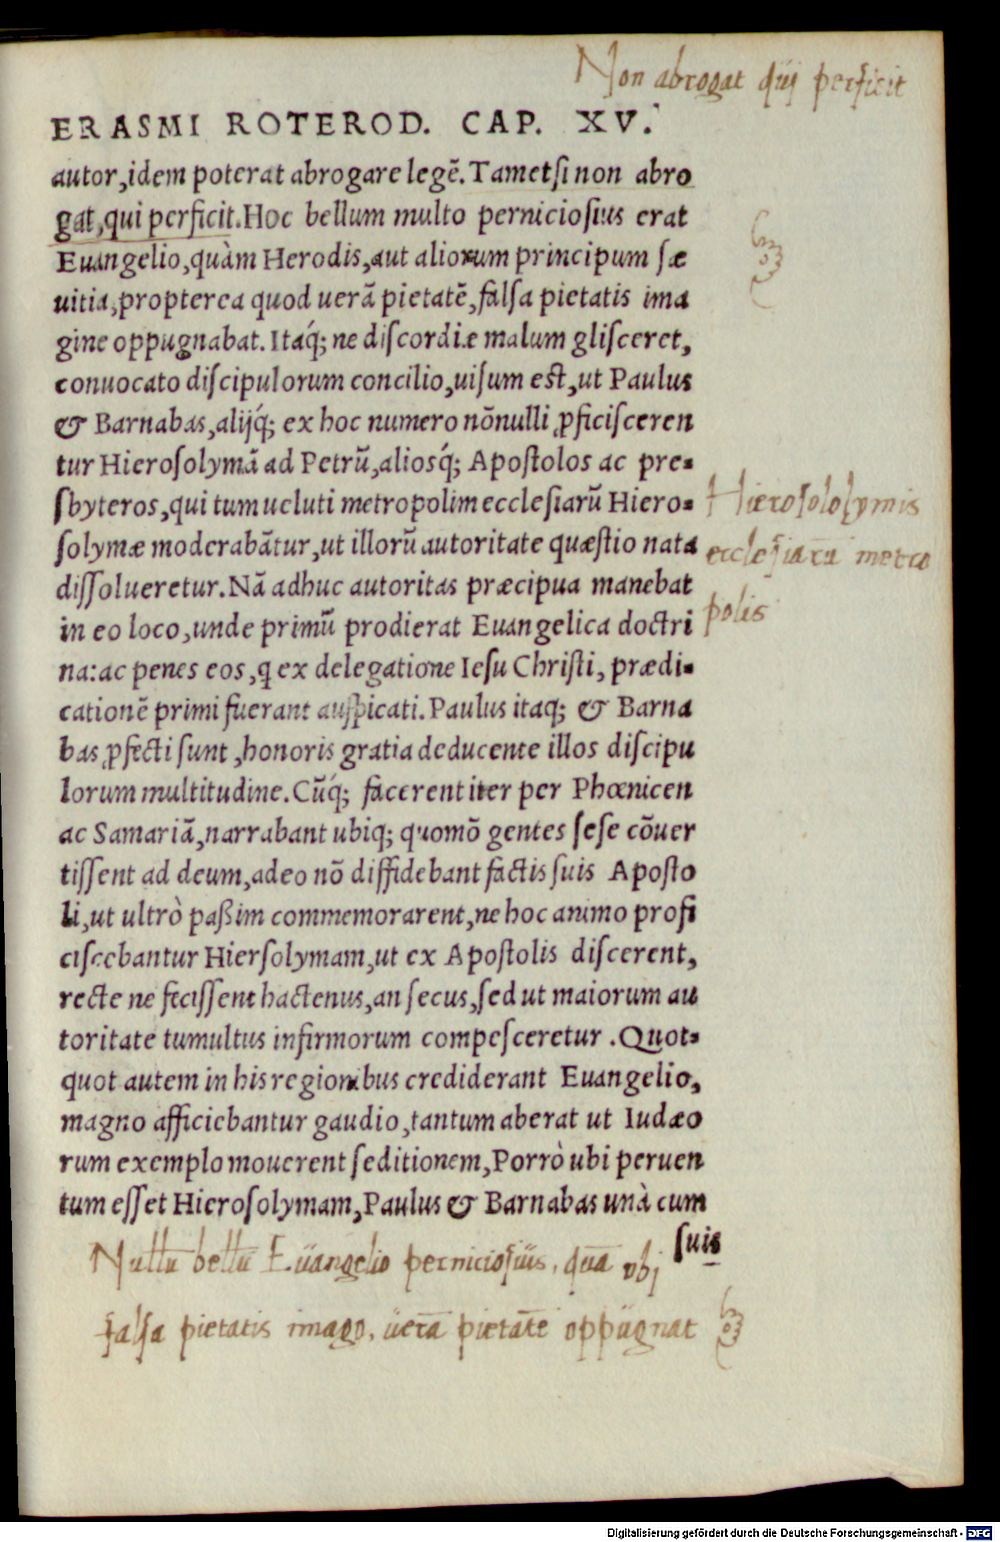 Non abrogat qui perficit
ERASMI ROTEROD. CAP. XV.
autor, idem poterat abrogare legẽ. Tametſi non abro
gat, qui perficit. Hoc bellum multo pernicioſius erat
Euangelio, quàm Herodis, aut aliorum principum ſæ
uitia, propterea quod uerã pietatẽ, falſa pietatis ima
gine oppugnabat. Itaq́; ne diſcordiæ malum gliſceret,
conuocato diſcipulorum concilio, uiſum eſt, ut Paulus
& Barnabas, alijq́; ex hoc numero nõnulli ꝓficiſceren
tur Hieroſolymã ad Petrũ, alioſq́; Apoſtolos ac pre-
ſbyteros, qui tum ueluti metropolim eccleſiarũ Hiero-
ſolymæ moderabãtur, ut illorũ autoritate quæſtio nata
diſſolueretur. Nã adhuc autoritas præcipua manebat
in eo loco, unde primũ prodierat Euangelica doctri
na: ac penes eos, q ex delegatione Ieſu Chriſti, prædi-
cationẽ primi fuerant auſpicati. Paulus itaq; & Barna
bas ꝓfecti ſunt, honoris gratia deducente illos diſcipu
lorum multitudine. Cũq́; facerent iter per Phœnicen
ac Samariã, narrabant ubiq; quomõ gentes ſeſe cõuer
tiſſent ad deum, adeo nõ diffidebant factis ſuis Apoſto
li, ut ultrò paßim commemorarent, ne hoc animo profi
ciſcebantur Hierſolymam, ut ex Apoſtolis diſcerent,
recte ne feciſſent hactenus, an ſecus, ſed ut maiorum au
toritate tumultus infirmorum compeſceretur. Quot-
quot autem in his regionibus crediderant Euangelio,
magno afficiebantur gaudio, tantum aberat ut Iudæo
rum exemplo mouerent ſeditionem, Porrò ubi peruen
tum eſſet Hieroſolymam, Paulus & Barnabas unà cum
ſuis
Hieroſololymis
eccleſiarũ metro
polis
Nullũ bellũ Euangelio pernicioſius, quã ubi
falſa pietatis imago, uerã pietatẽ oppugnat
Digitalisierung gefördert durch die Deutsche Forschungsgemeinschaft - DFG